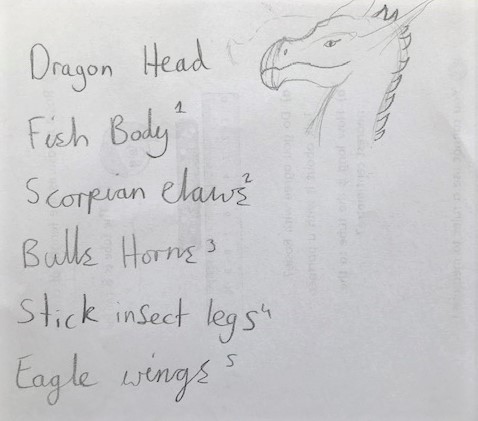 Dragon Head
Fish Body¹
Scorpian Claws²
Bulls Horns³
Stick insect legs⁴
Eagle wings⁵